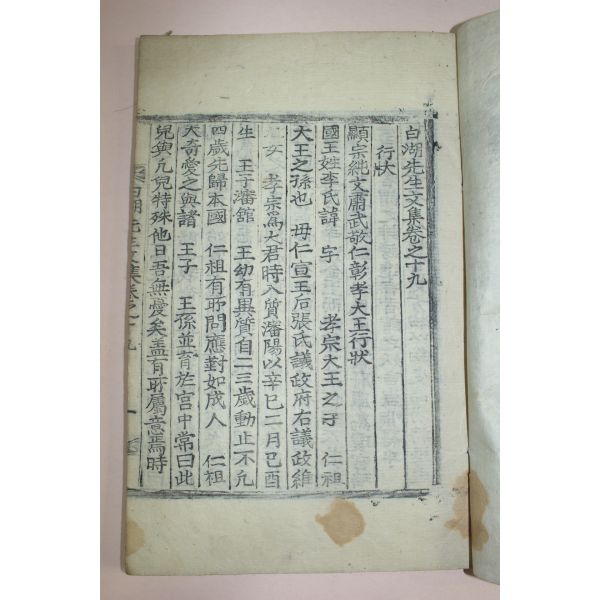 白湖先生文集卷之十九
行狀
顯宗純文肅武敬仁彰孝大王行狀
國王姓李氏諱 字 孝宗大王之子 仁祖
大王之孫也 毋仁宣王后張氏議政府右議政維
之女 孝宗爲大君時入質瀋陽以辛巳二月己酉
生 王子瀋館 王幼有異質自二三歲動止不凡
四歲先歸本國 仁祖有所問應對如成人 仁祖
大奇愛之與諸 王子 王孫並育於宮中常曰此
兒與凡兒特殊他日吾無憂矣盖有所屬意焉時
白湖先生文集卷之十九 一